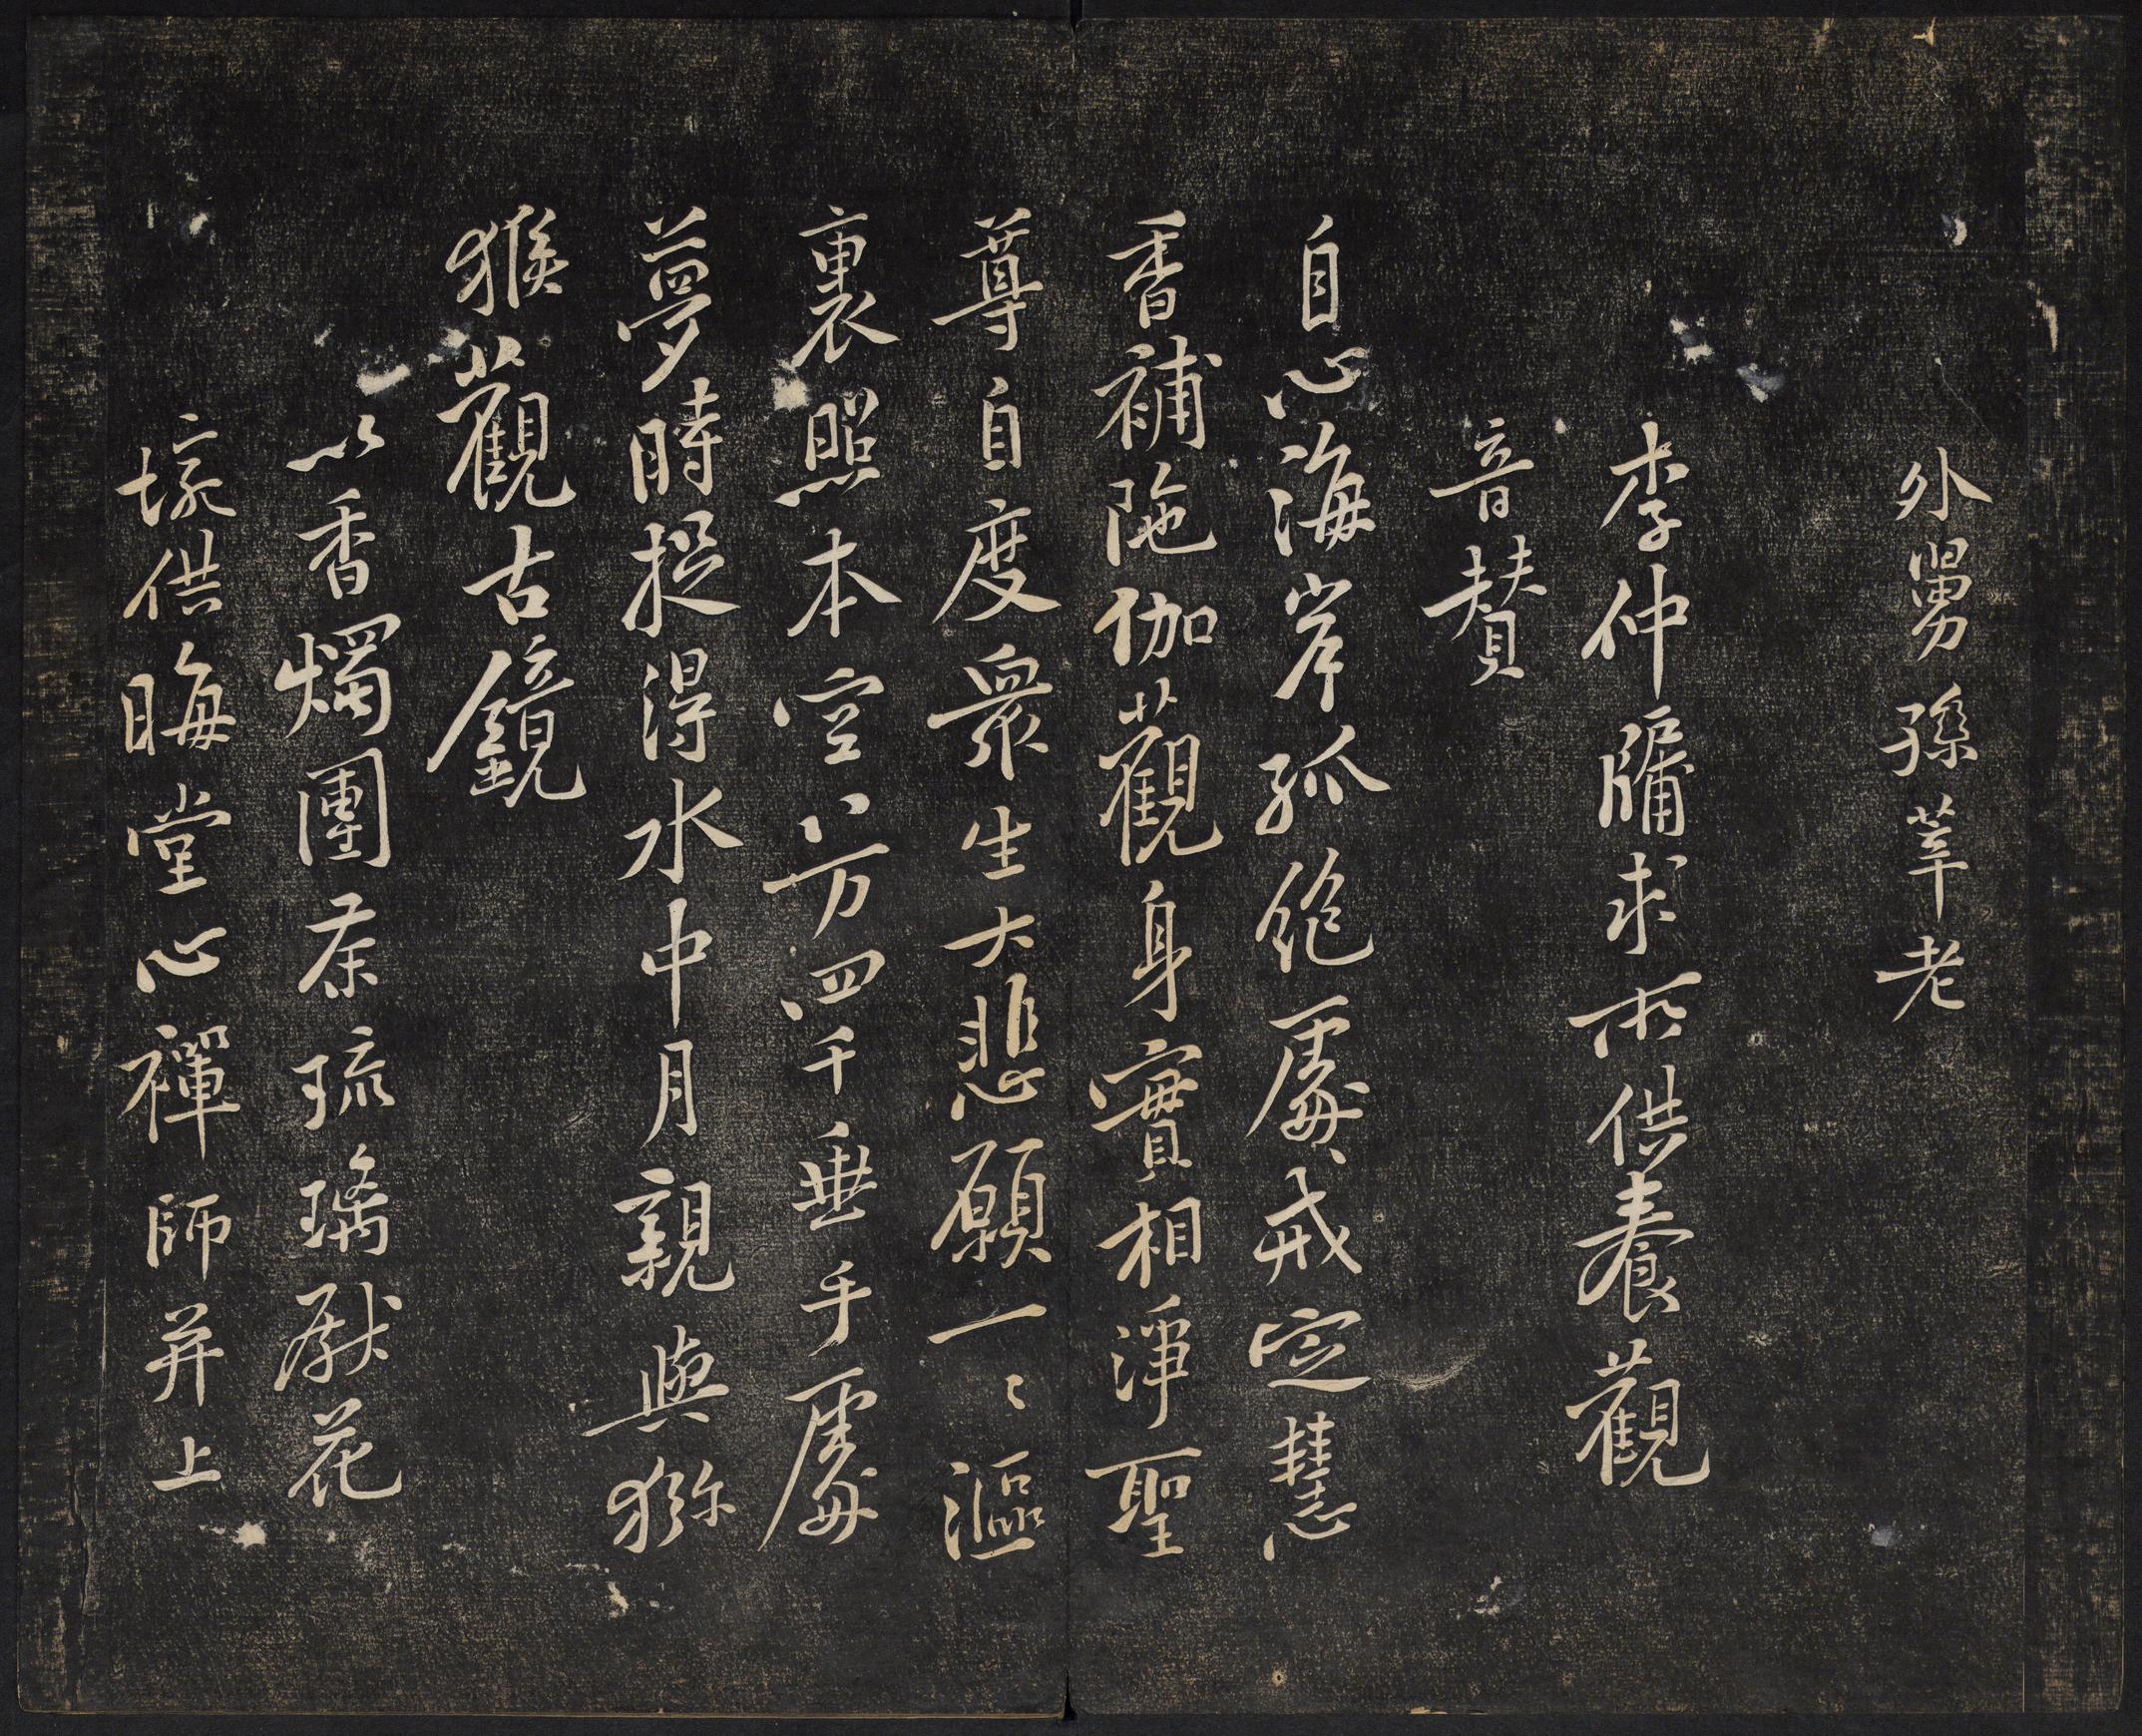 外舅孫莘老
李仲牖求所供養觀
音賛
自心海岸孤絶處戒定慧
香補陁伽觀身實相淨聖
尊自度衆生大悲願一〻漚
裏照本空八万四千垂手處
夢時捉得水中月親與獼
猴觀古鏡
以香燭團茶琉璃獻花
埦供晦堂心禪師并上